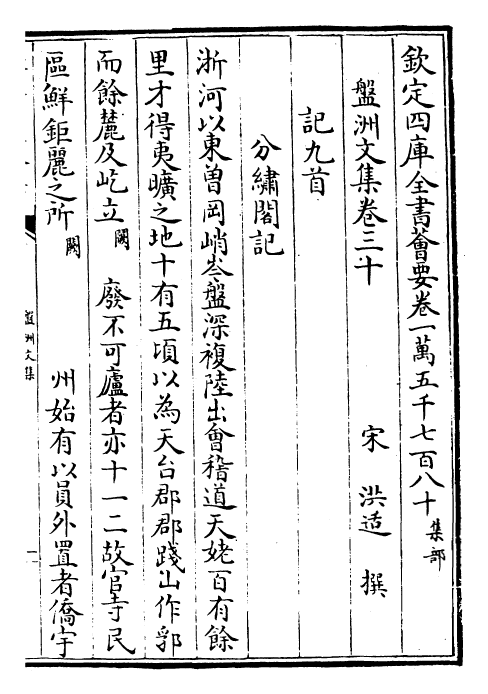 欽定四庫全書薈要卷一萬五千七百八十 集部
盤洲文集卷三十 宋 洪适 撰
記九首
分繡閣記
浙河以東曽岡峭岺盤深複陸出會稽道天姥百有餘
里才得夷曠之地十有五頃以為天台郡郡踐山作郛
而餘麓及屹立闕 廢不可廬者亦十一二故官寺民
區鮮鉅麗之所闕 州始有以員外置者僑宇
盤洲文集
一